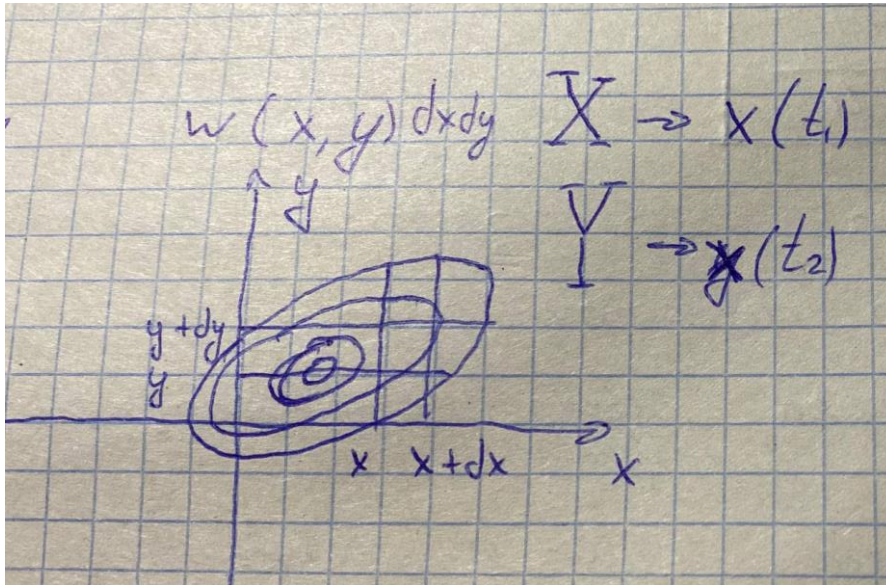 w(x, y)dxdy X → x(t₁)
y
Y → y(t₂)
y+dy
y
x x+dx x